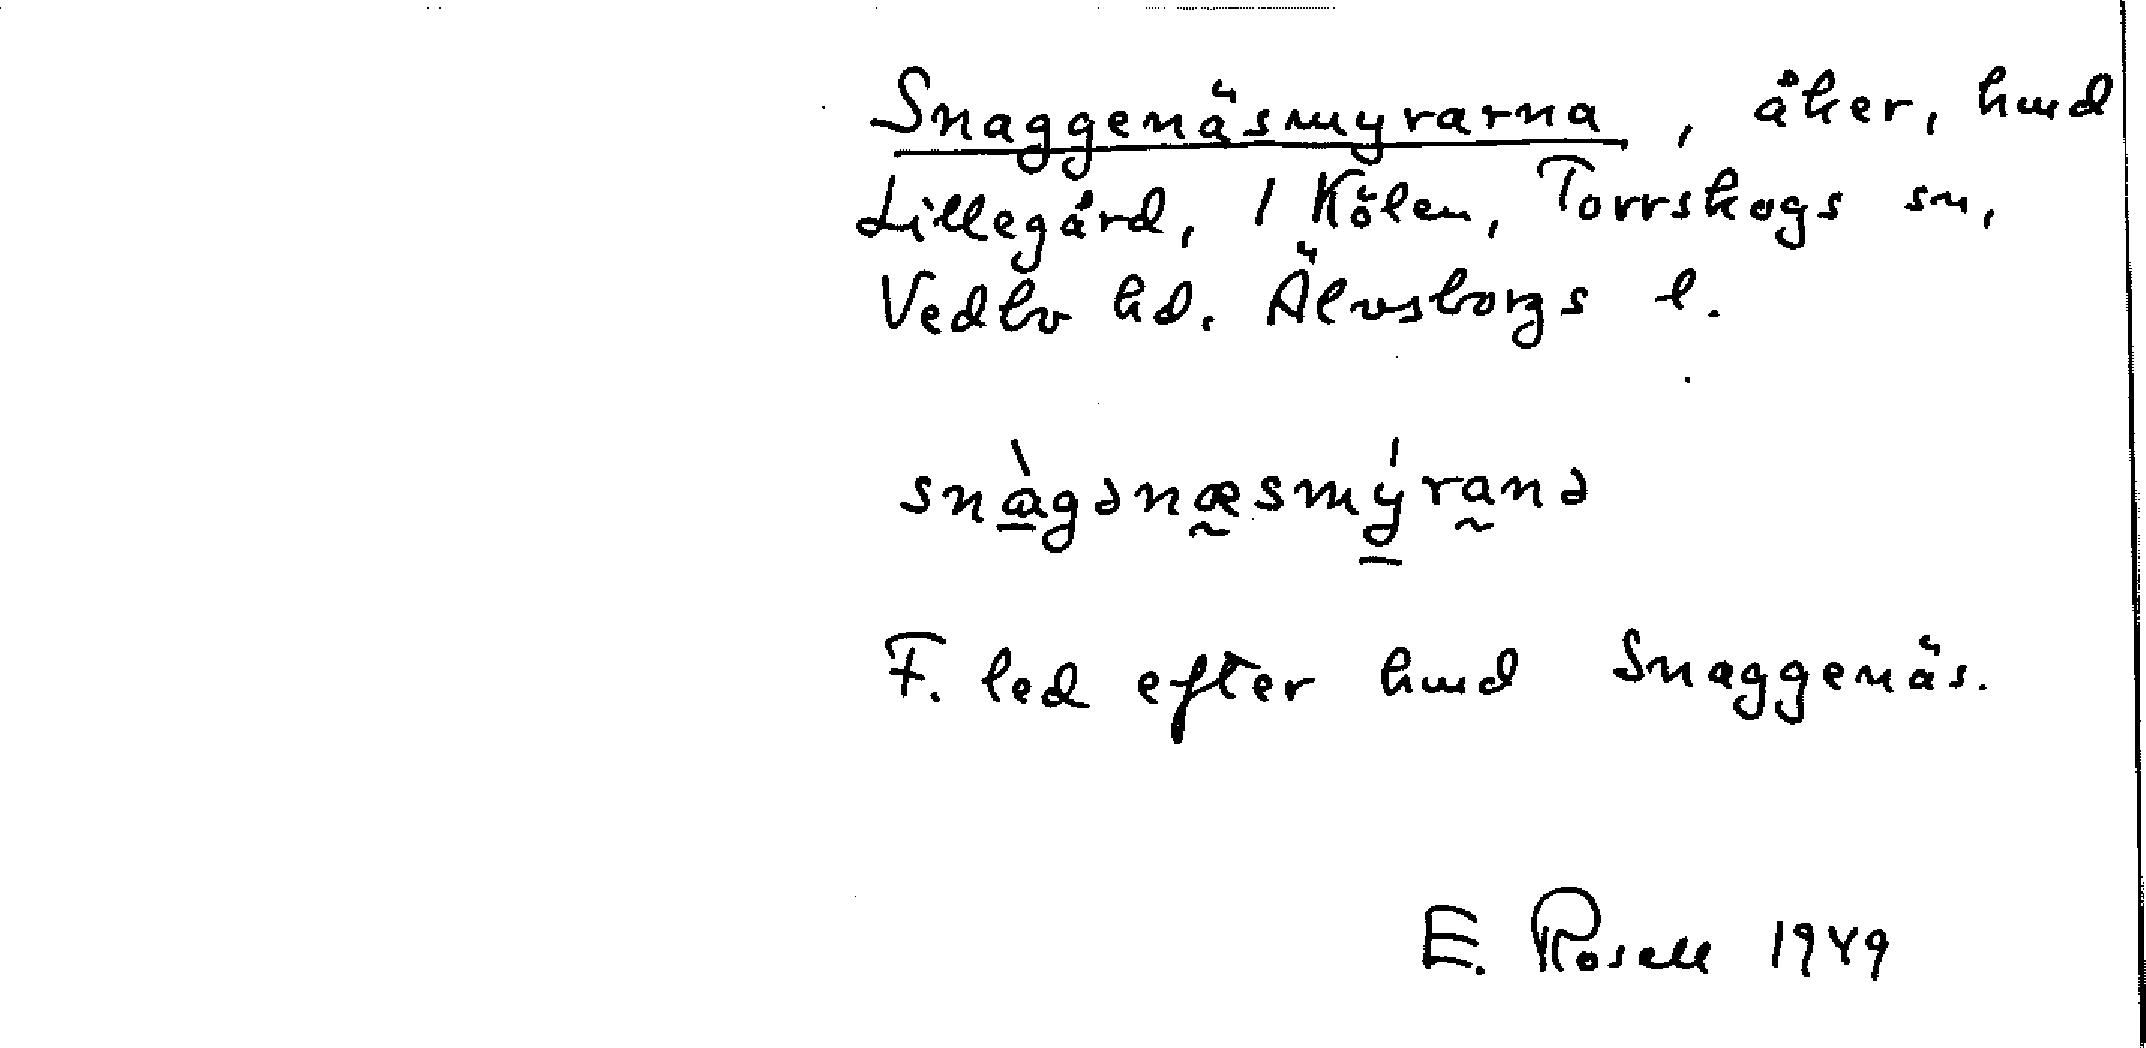 Snaggenäsmyrarna, åker, hmd
Lillegård, 1 Kölen, Torrskogs sn,
Vedbo hd. Älvsborgs l.
snàgənæsmýranə
F. led efter hmd Snaggenäs.
E. Rosell 1949